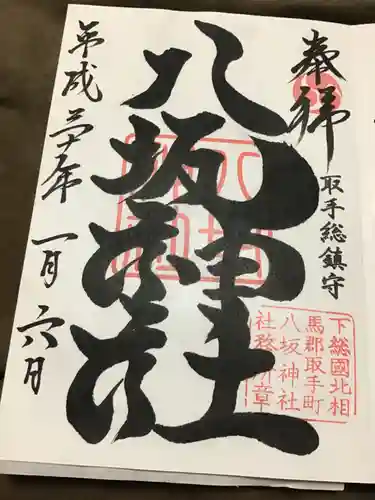 奉拝
取手総鎮守
八坂神社
平成三十年
一月六日
下総國北相
馬郡取手町
八坂神社
社務所章